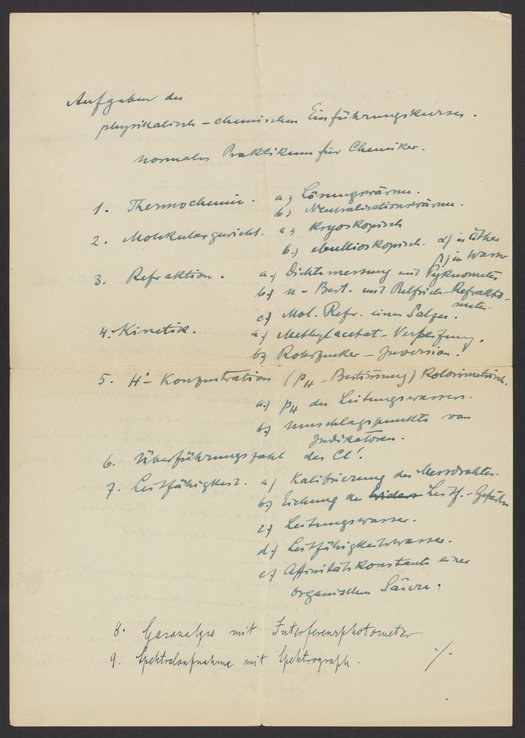 Aufgaben des
physikalisch-chemischen Einführungskurses.
normales Praktikum für Chemiker.
1. Thermochemie. a.) Lösungswärme.
b.) Neutralisationswärme.
2. Molekulargewicht. a.) kryoskopisch
b.) ebullioskopisch. α) in Äther
β) in Wasser
3. Refraktion. a.) Dichtemessung mit Pyknometer
b.) n-Best. mit Pulfrich-Refrakto-
meter.
c.) Mol. Refr. eines Salzes.
4. Kinetik. a.) Methylacetat-Verseifung.
b.) Rohrzucker-Inversion.
5. H˙-Konzentration (pH-Bestimmung) Kolorimetrisch.
a.) pH des Leitungswassers.
b.) Umschlagspunkte von
Indikatoren.
6. Überführungszahl des Cl'.
7. Leitfähigkeit. a.) Kalibrierung des Messdrahtes.
b.) Eichung des Leitf.-Gefäßes
c.) Leitungswasser.
d.) Leitfähigkeitswasser.
e.) Affinitätskonstante einer
organischen Säure.
8. Gasanalyse mit Interferenzphotometer
9. Spektralaufnahme mit Spektrograph. ./.